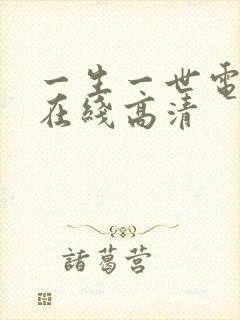 一生一世電
在綫高清
諸葛营